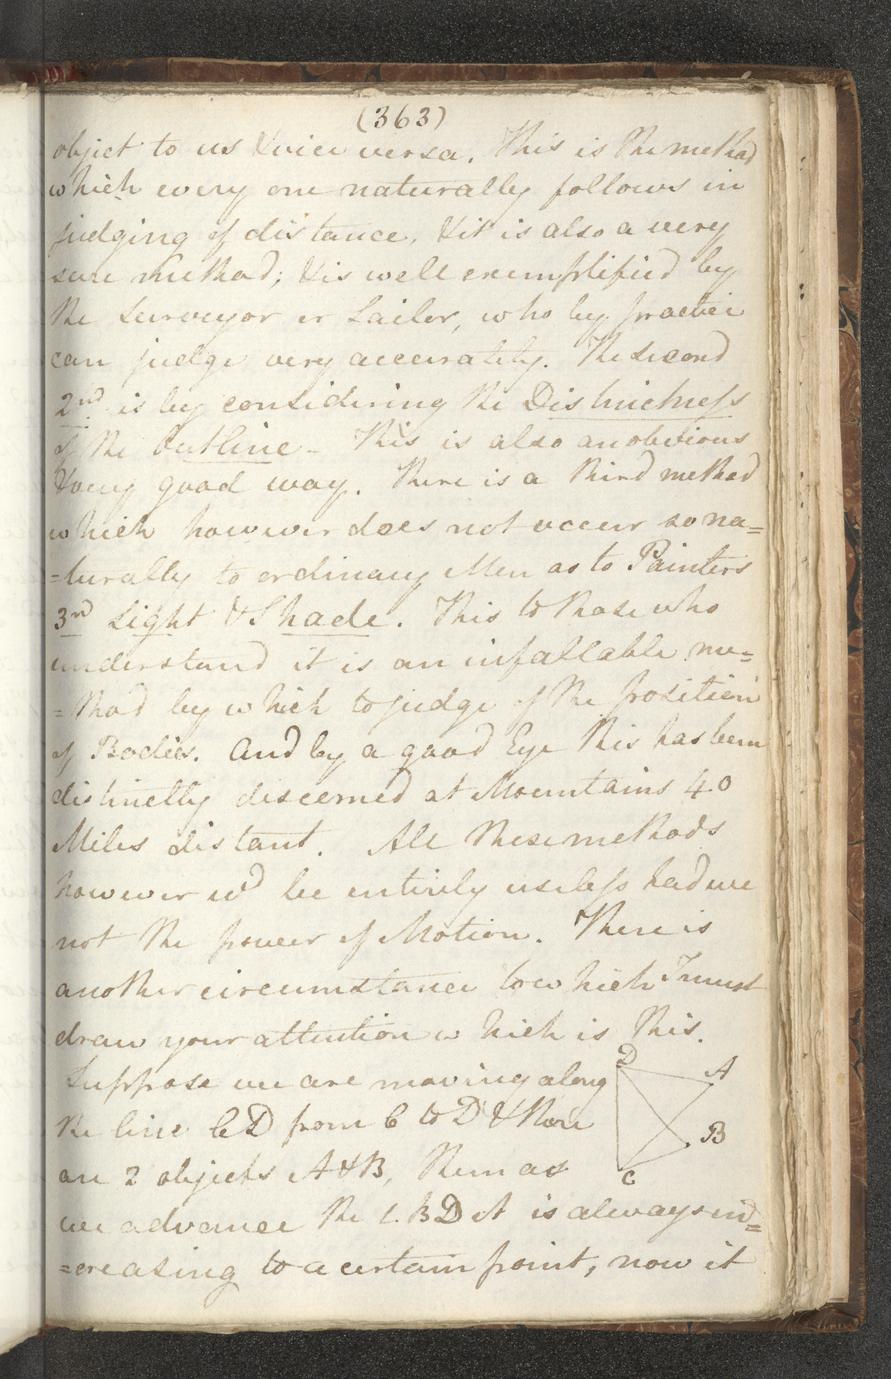 (363)
object to us & vice versa. This is the method
which every one naturally follows in
judging of distance, & it is also a very
sure method; & is well exemplified by
the Surveyor or Sailor, who by practice
can judge very accurately. The second
2nd is by considering the Distinctness
of the Outline - This is also an obvious
& very good way. There is a third method
which however does not occur so na=
=turally to ordinary Men as to Painters
3rd Light & Shade. This to those who
understand it is an infallable me=
=thod by which to judge of the position
of Bodies. And by a good Eye this has been
distinctly discerned at Mountains 40
Miles distant. All these methods
however wd be entirely useless had we
not the power of Motion. There is
another circumstance to which I must
draw your attention which is this.
Suppose we are moving along
the line CD from C to D & there
are 2 objects A & B, then as
we advance the L. BDA is always in=
=creasing to a certain point, now it
D
A
B
C